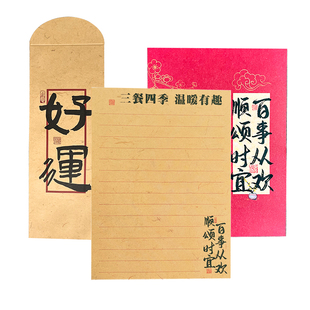 好運
三餐四季 温暖有趣
百事从欢
顺颂时宜
百事从欢
顺颂时宜